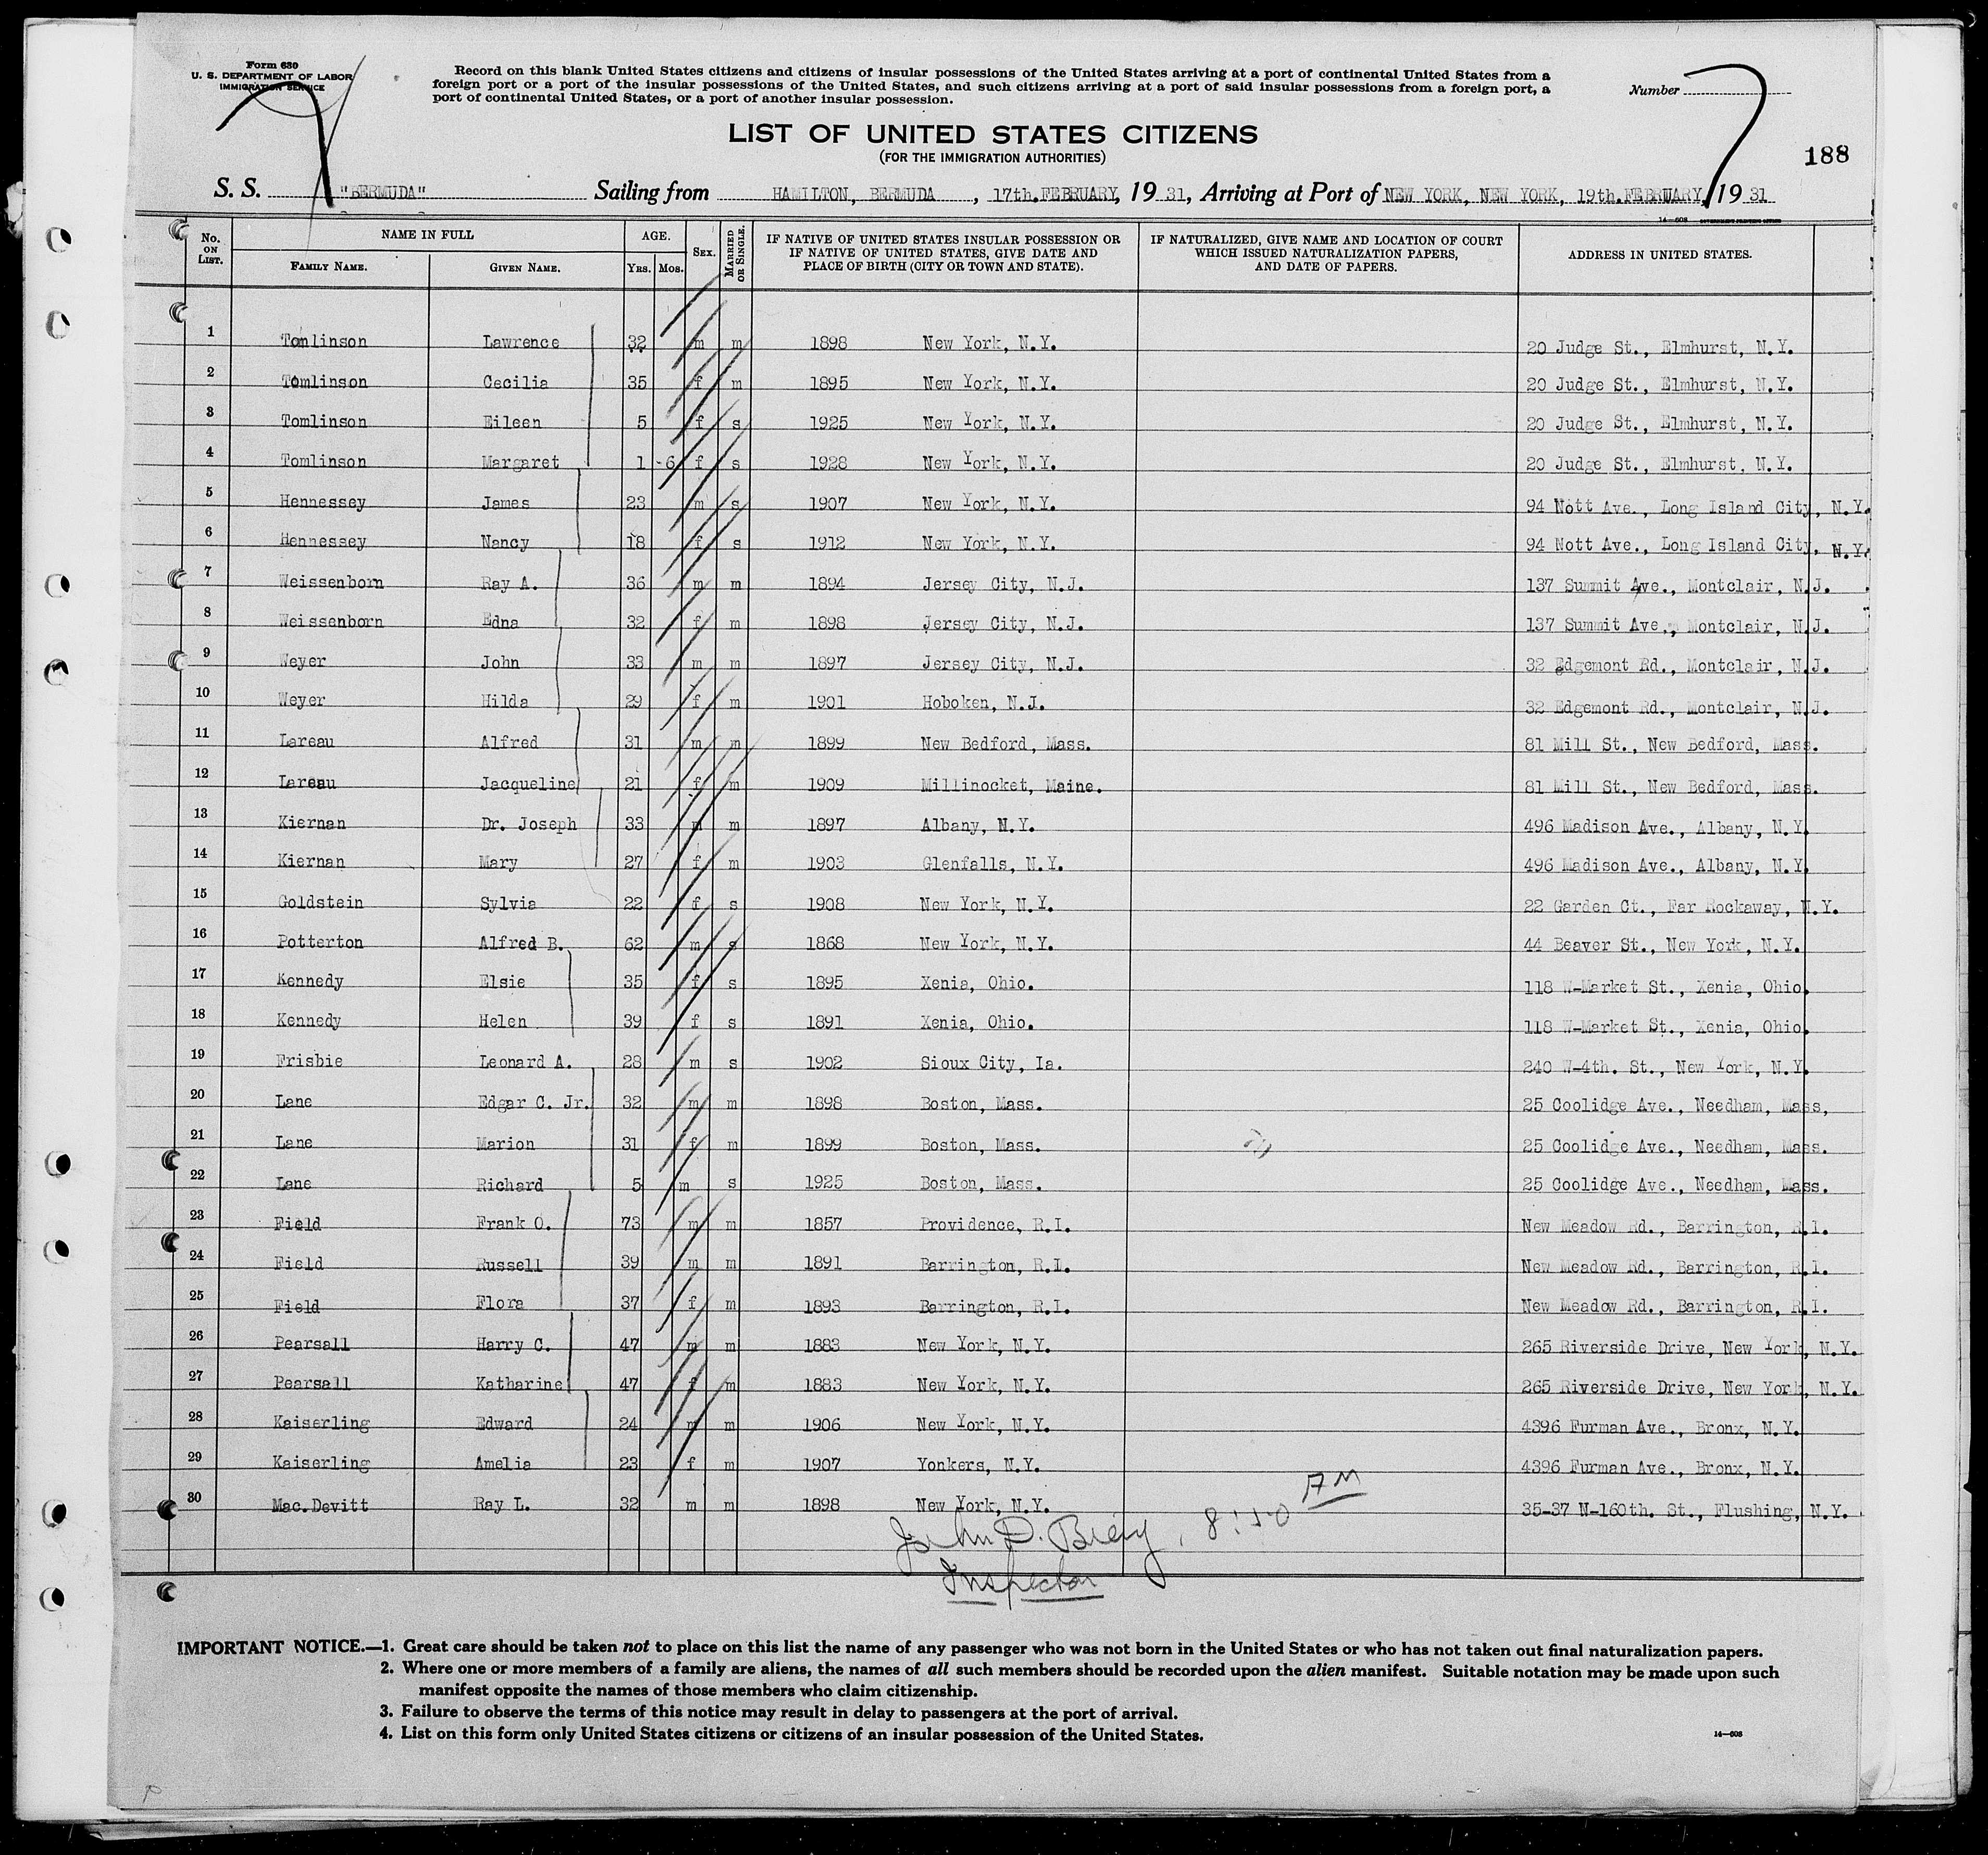 Form 630
U. S. DEPARTMENT OF LABOR
IMMIGRATION SERVICE
Record on this blank United States citizens and citizens of insular possessions of the United States arriving at a port of continental United States from a
foreign port or a port of the insular possessions of the United States, and such citizens arriving at a port of said insular possessions from a foreign port, a
port of continental United States, or a port of another insular possession.
Number
7
7
LIST OF UNITED STATES CITIZENS
(FOR THE IMMIGRATION AUTHORITIES)
188
S. S. "BERMUDA" Sailing from HAMILTON, BERMUDA, 17th.FEBRUARY, 1931, Arriving at Port of NEW YORK, NEW YORK, 19th.FEBRUARY, 1931
14—608 GOVERNMENT PRINTING OFFICE
No. ON LIST. NAME IN FULL AGE. SEX. MARRIED OR SINGLE. IF NATIVE OF UNITED STATES INSULAR POSSESSION OR IF NATIVE OF UNITED STATES, GIVE DATE AND PLACE OF BIRTH (CITY OR TOWN AND STATE). IF NATURALIZED, GIVE NAME AND LOCATION OF COURT WHICH ISSUED NATURALIZATION PAPERS, AND DATE OF PAPERS. ADDRESS IN UNITED STATES.
FAMILY NAME. GIVEN NAME. YRS. MOS.
1 Tomlinson Lawrence 32 m m 1898 New York, N.Y. 20 Judge St., Elmhurst, N.Y.
2 Tomlinson Cecilia 35 f m 1895 New York, N.Y. 20 Judge St., Elmhurst, N.Y.
3 Tomlinson Eileen 5 f s 1925 New York, N.Y. 20 Judge St., Elmhurst, N.Y.
4 Tomlinson Margaret 1 -6 f s 1928 New York, N.Y. 20 Judge St., Elmhurst, N.Y.
5 Hennessey James 23 m s 1907 New York, N.Y. 94 Nott Ave., Long Island City, N.Y.
6 Hennessey Nancy 18 f s 1912 New York, N.Y. 94 Nott Ave., Long Island City, N.Y.
7 Weissenborn Ray A. 36 m m 1894 Jersey City, N.J. 137 Summit Ave., Montclair, N.J.
8 Weissenborn Edna 32 f m 1898 Jersey City, N.J. 137 Summit Ave., Montclair, N.J.
9 Weyer John 33 m m 1897 Jersey City, N.J. 32 Edgemont Rd., Montclair, N.J.
10 Weyer Hilda 29 f m 1901 Hoboken, N.J. 32 Edgemont Rd., Montclair, N.J.
11 Lareau Alfred 31 m m 1899 New Bedford, Mass. 81 Mill St., New Bedford, Mass.
12 Lareau Jacqueline 21 f m 1909 Millinocket, Maine. 81 Mill St., New Bedford, Mass.
13 Kiernan Dr. Joseph 33 m m 1897 Albany, N.Y. 496 Madison Ave., Albany, N.Y.
14 Kiernan Mary 27 f m 1903 Glenfalls, N.Y. 496 Madison Ave., Albany, N.Y.
15 Goldstein Sylvia 22 f s 1908 New York, N.Y. 22 Garden Ct., Far Rockaway, N.Y.
16 Potterton Alfred B. 62 m s 1868 New York, N.Y. 44 Beaver St., New York, N.Y.
17 Kennedy Elsie 35 f s 1895 Xenia, Ohio. 118 W-Market St., Xenia, Ohio.
18 Kennedy Helen 39 f s 1891 Xenia, Ohio. 118 W-Market St., Xenia, Ohio.
19 Frisbie Leonard A. 28 m s 1902 Sioux City, Ia. 240 W-4th. St., New York, N.Y.
20 Lane Edgar C. Jr. 32 m m 1898 Boston, Mass. 25 Coolidge Ave., Needham, Mass,
21 Lane Marion 31 f m 1899 Boston, Mass. 25 Coolidge Ave., Needham, Mass.
22 Lane Richard 5 m s 1925 Boston, Mass. 25 Coolidge Ave., Needham, Mass.
23 Field Frank O. 73 m m 1857 Providence, R.I. New Meadow Rd., Barrington, R.I.
24 Field Russell 39 m m 1891 Barrington, R.I. New Meadow Rd., Barrington, R.I.
25 Field Flora 37 f m 1893 Barrington, R.I. New Meadow Rd., Barrington, R.I.
26 Pearsall Harry C. 47 m m 1883 New York, N.Y. 265 Riverside Drive, New York, N.Y.
27 Pearsall Katharine 47 f m 1883 New York, N.Y. 265 Riverside Drive, New York, N.Y.
28 Kaiserling Edward 24 m m 1906 New York, N.Y. 4396 Furman Ave., Bronx, N.Y.
29 Kaiserling Amelia 23 f m 1907 Yonkers, N.Y. 4396 Furman Ave., Bronx, N.Y.
30 Mac.Devitt Ray L. 32 m m 1898 New York, N.Y. 35-37 N-160th. St., Flushing, N.Y.
John D. 8:50 AM
Inspector
IMPORTANT NOTICE.—1. Great care should be taken not to place on this list the name of any passenger who was not born in the United States or who has not taken out final naturalization papers.
2. Where one or more members of a family are aliens, the names of all such members should be recorded upon the alien manifest. Suitable notation may be made upon such
manifest opposite the names of those members who claim citizenship.
3. Failure to observe the terms of this notice may result in delay to passengers at the port of arrival.
4. List on this form only United States citizens or citizens of an insular possession of the United States.
14—608